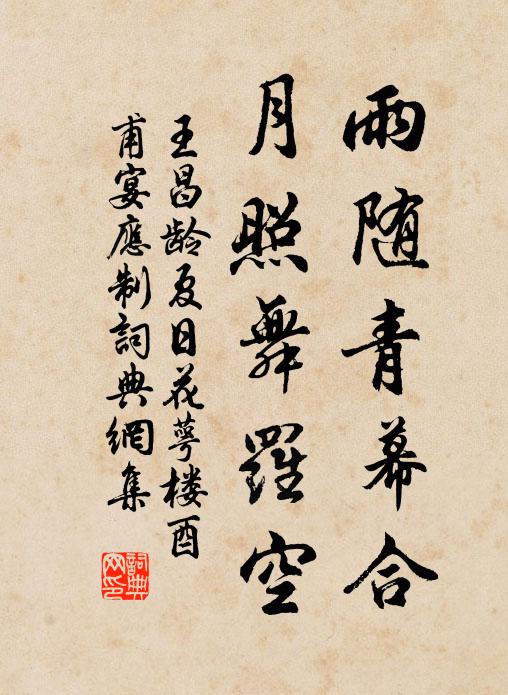 雨随青幕合
月照舞羅空
王昌龄夏日花萼楼酉
甫宴應制詞典網集
詞典
网印